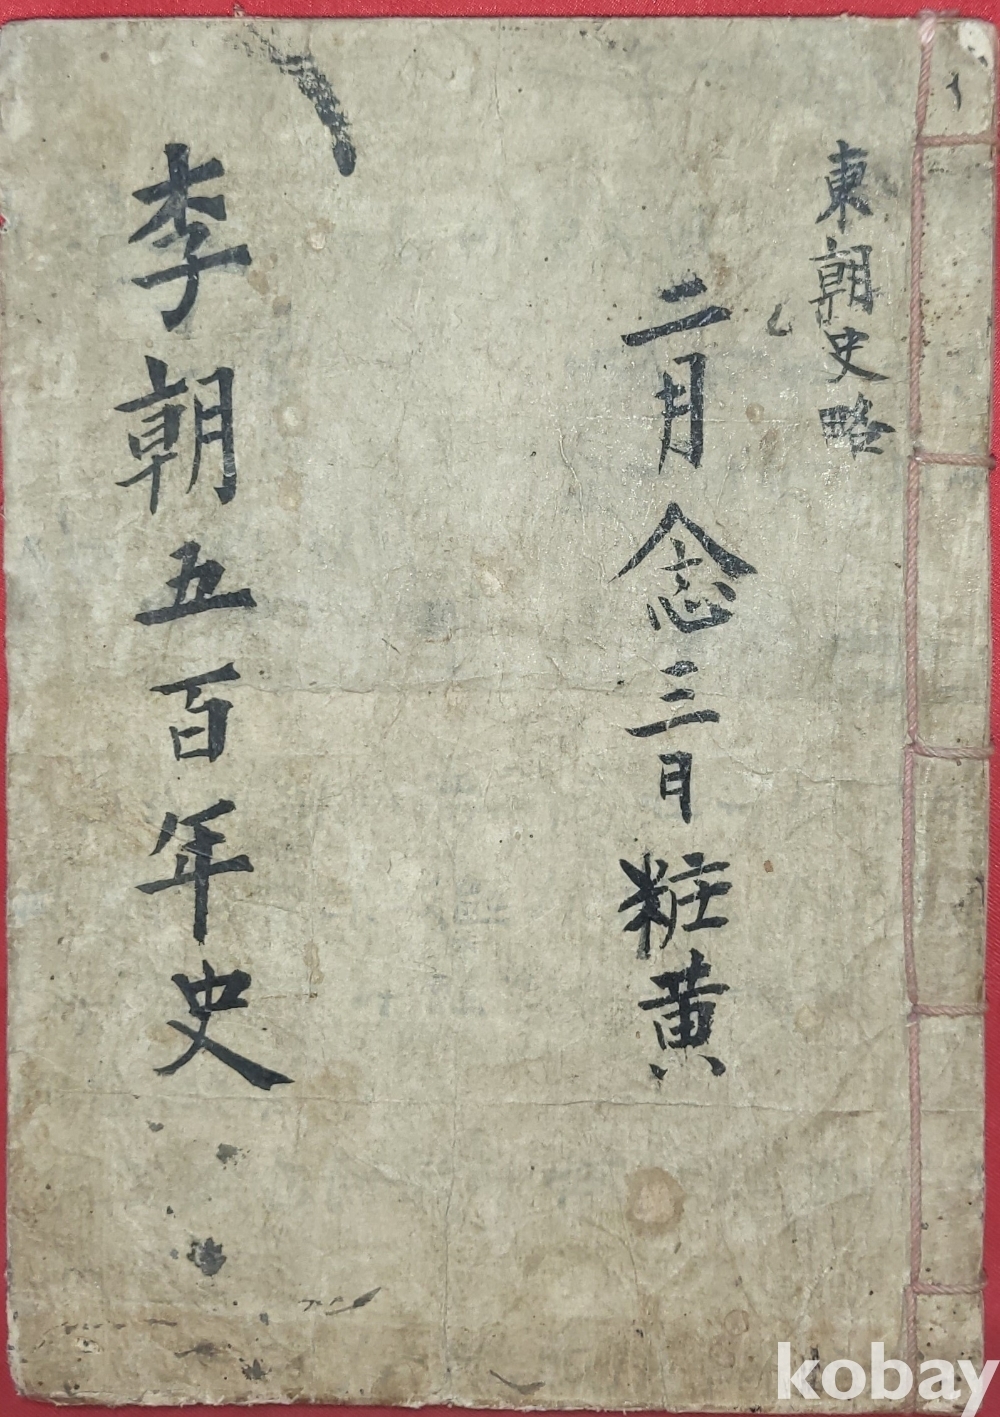 東朝史略
二月念三日粧黄
李朝五百年史
kobay